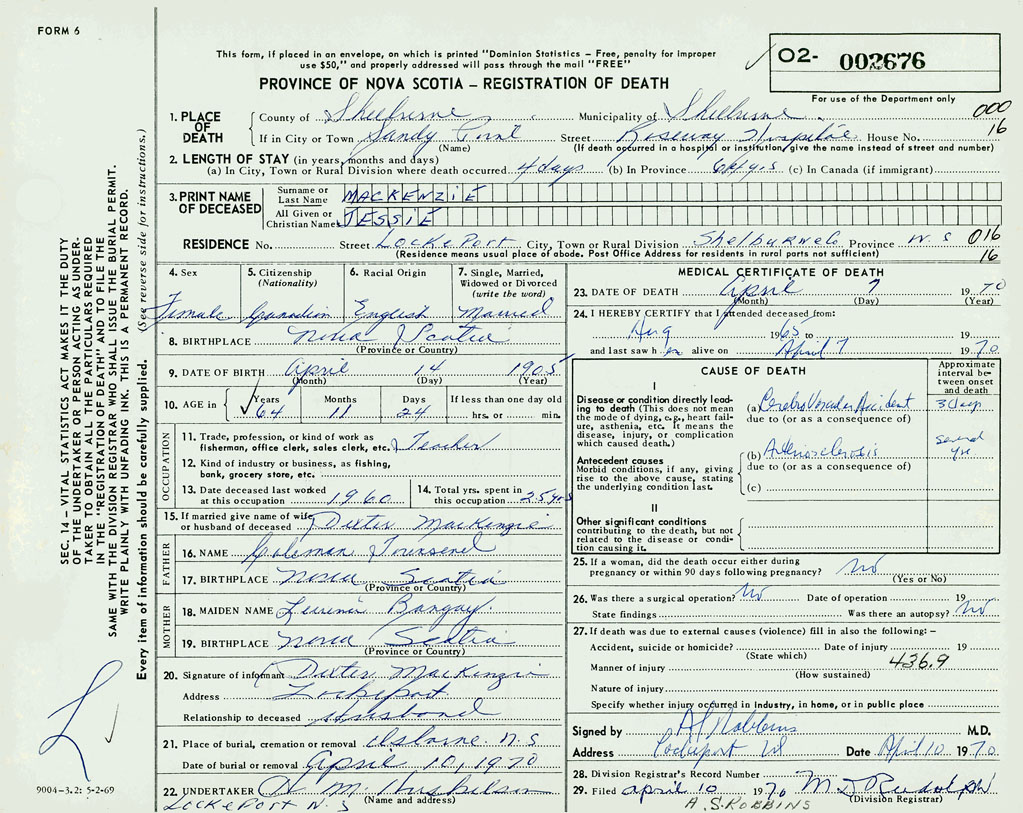 FORM 6
This form, if placed in an envelope, on which is printed "Dominion Statistics – Free, penalty for improper
use $50," and properly addressed will pass through the mail "FREE"
O2- 002676
PROVINCE OF NOVA SCOTIA – REGISTRATION OF DEATH
For use of the Department only
1. PLACE OF DEATH County of Shelburne Municipality of Shelburne 000
If in City or Town Sandy Point Street Roseway Hospital House No. 16
(Name) (If death occurred in a hospital or institution, give the name instead of street and number)
2. LENGTH OF STAY (in years, months and days)
(a) In City, Town or Rural Division where death occurred 4 days (b) In Province 64 yrs (c) In Canada (if immigrant)
3. PRINT NAME OF DECEASED Surname or Last Name MACKENZIE
All Given or Christian Names JESSIE
RESIDENCE No. Street LOCKEPORT City, Town or Rural Division Shelburne Co Province N.S 016
(Residence means usual place of abode. Post Office Address for residents in rural parts not sufficient) 16
4. Sex Female
5. Citizenship (Nationality) Canadian
6. Racial Origin English
7. Single, Married, Widowed or Divorced (write the word) Married
8. BIRTHPLACE Nova Scotia
(Province or Country)
9. DATE OF BIRTH April 14 1905
(Month) (Day) (Year)
10. AGE in Years Months Days If less than one day old
64 11 24 hrs. or min.
OCCUPATION
11. Trade, profession, or kind of work as
fisherman, office clerk, sales clerk, etc. Teacher
12. Kind of industry or business, as fishing,
bank, grocery store, etc.
13. Date deceased last worked at this occupation 1960
14. Total yrs. spent in this occupation 25 yrs
15. If married give name of wife
or husband of deceased Dexter MacKenzie
FATHER
16. NAME Coleman Townsend
17. BIRTHPLACE Nova Scotia
(Province or Country)
MOTHER
18. MAIDEN NAME Bangay
19. BIRTHPLACE Nova Scotia
(Province or Country)
20. Signature of informant Dexter MacKenzie
Address Lockeport
Relationship to deceased Husband
21. Place of burial, cremation or removal Osborne N.S
Date of burial or removal April 10, 1970
22. UNDERTAKER H. M. Huskilson
LOCKEPORT N.S (Name and address)
MEDICAL CERTIFICATE OF DEATH
23. DATE OF DEATH April 7 1970
(Month) (Day) (Year)
24. I HEREBY CERTIFY that I attended deceased from:
Aug 1965 to 19
and last saw her alive on April 7 1970
CAUSE OF DEATH
Approximate interval between onset and death
I
Disease or condition directly leading to death (This does not mean the mode of dying, e.g., heart failure, asthenia, etc. It means the disease, injury, or complication which caused death.)
(a) Cerebro Vascular Accident 3 Days
due to (or as a consequence of)
Antecedent causes
Morbid conditions, if any, giving rise to the above cause, stating the underlying condition last.
(b) Arteriosclerosis several yrs
due to (or as a consequence of)
(c)
II
Other significant conditions
contributing to the death, but not related to the disease or condition causing it.
25. If a woman, did the death occur either during
pregnancy or within 90 days following pregnancy? No
(Yes or No)
26. Was there a surgical operation? No Date of operation 19
State findings Was there an autopsy? No
27. If death was due to external causes (violence) fill in also the following: –
Accident, suicide or homicide? Date of injury 19
(State which) 436.9
Manner of injury
(How sustained)
Nature of injury
Specify whether injury occurred in Industry, in home, or in public place
Signed by A S Robbins M.D.
Address Lockeport NS Date April 10 1970
28. Division Registrar's Record Number
29. Filed April 10 1970 M. D. Rudolph
A.S. ROBBINS (Division Registrar)
SEC. 14 – VITAL STATISTICS ACT MAKES IT THE DUTY
OF THE UNDERTAKER OR PERSON ACTING AS UNDER-
TAKER TO OBTAIN ALL THE PARTICULARS REQUIRED
IN THE "REGISTRATION OF DEATH" AND TO FILE THE
SAME WITH THE DIVISION REGISTRAR WHO SHALL ISSUE THE BURIAL PERMIT.
WRITE PLAINLY WITH UNFADING INK. THIS IS A PERMANENT RECORD.
Every item of information should be carefully supplied. (See reverse side for instructions.)
9004-3.2: 5-2-69